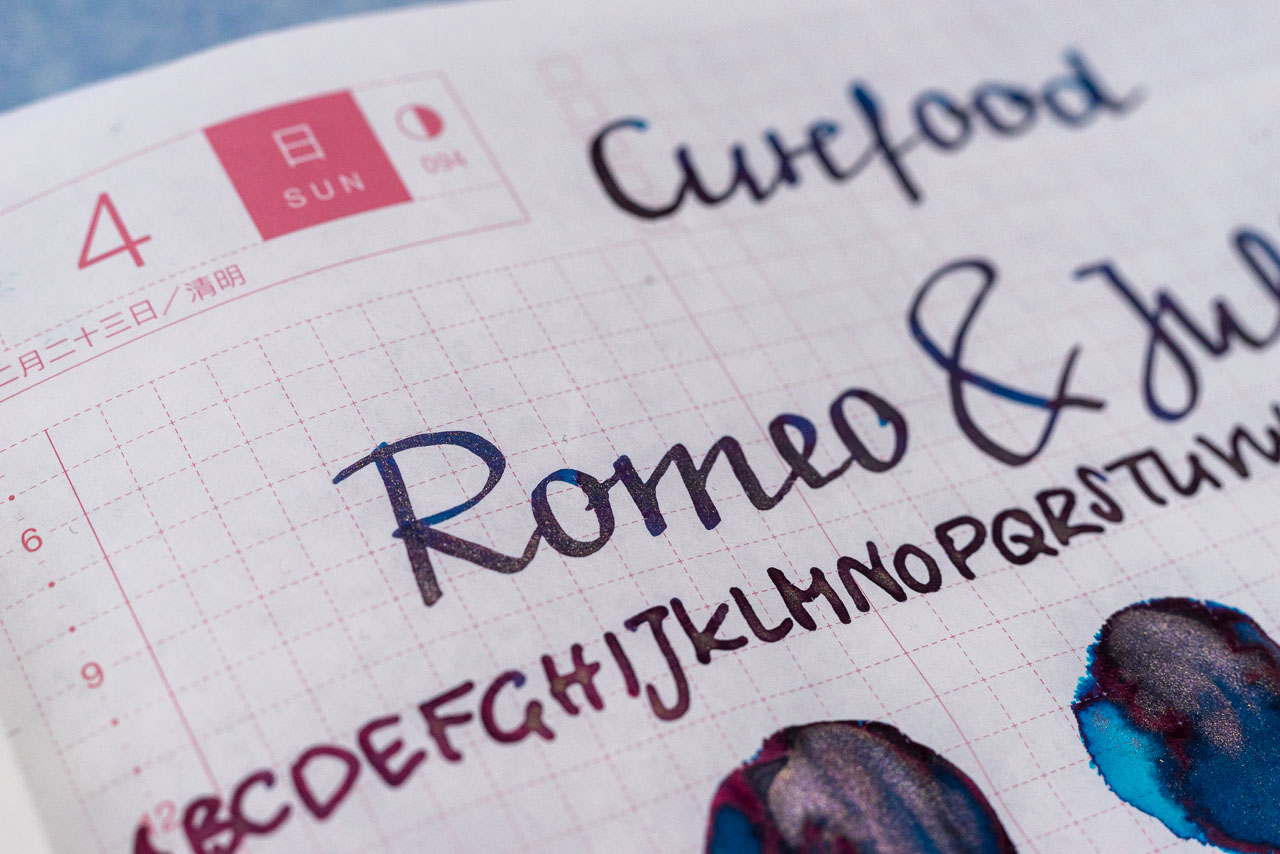 4
日
SUN
094
二月二十三日／清明
Romeo & Jul
6
ABCDEFGHIJKLMNOPQRSTUVW
9
12